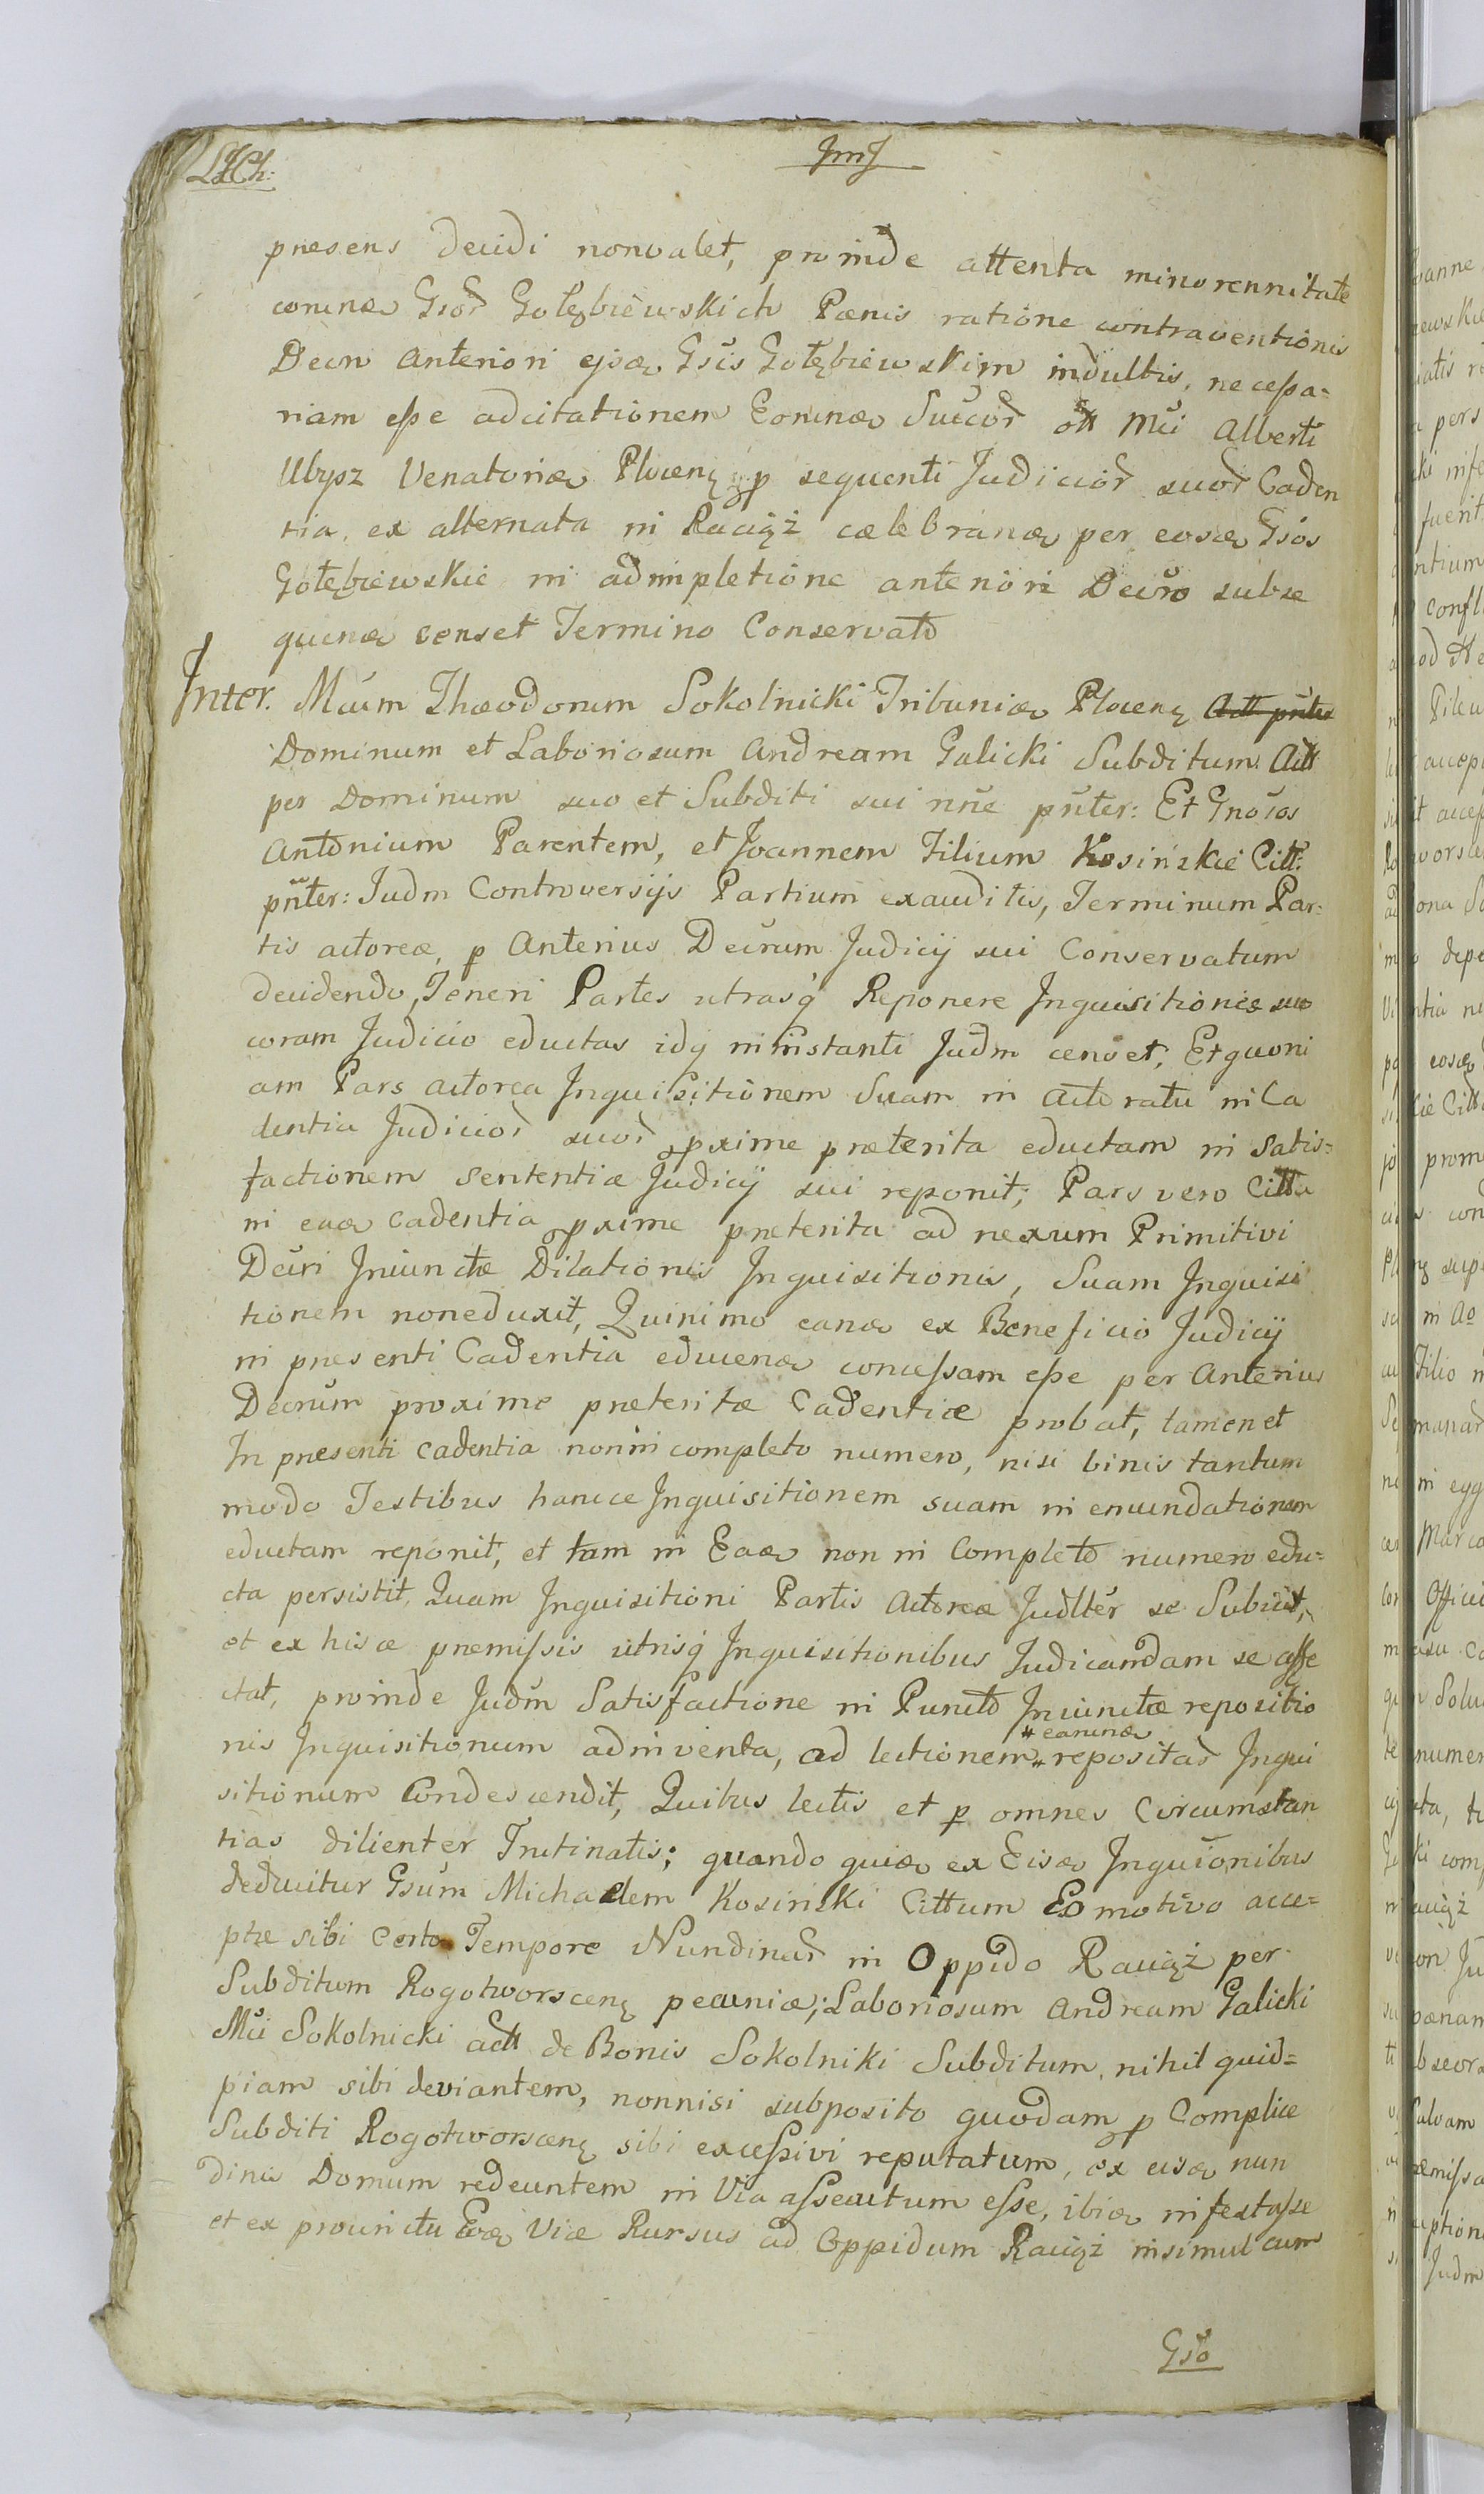 LJCh:
JmJ
presens decidi nonvalet, proinde attenta minorennitate
eorunæ Gsor̄ Gołębiewskich Pænis ratione contraventionis
Decro anteriori ejsæ Gsis Gołębiewskim indultis, necessa=
riam esse adcitationem Eorunæ Succor̄ ōtt Mci Alberti
Ulrysz Venatoriæ Plocenȩ p sequenti Judicior̄ suor̄ Caden
tia, ex alternata in Raciąż cælebranæ per eosæ Gsos
Gołębiewskie in adimpletione anteriori Decro subse
quenæ censet Termino Conservato
Inter. Mcum Thæodorum Sokolnicki Tribuniæ Plocenȩ
Dominum et Laboriosum Andream Galicki Subditum Actt
per Dominum suo et Subditi sui nn̄e pn̄ter: Et Gnosos
Antonium Parentem, et Joannem Filium Kosińskie Citt:
pn̄ter: Judm Controversijs Partium exauditis, Terminum Par=
tis actoreæ, p Anterius Decrum Judicij sui Conservatum
decidendo, Teneri Partes utrasq̇ Reponere Inquisitiones suo
coram Judicio eductas idq̇ ininstanti Judm censet; Etquoni
am Pars actorea Inquisitionem Suam in Actoratu in Ca
dentia Judicior̄ suor̄ pxime præterita eductam in Satis=
factionem Sententiæ Judicij sui reponit; Pars vero Citta
in eaæ cadentia pxime præterita ad nexum Primitivi
Decri Iniunctæ Dilationis Inquisitionis, Suam Inquisi
tionem noneduxit, Quinimo eanæ ex Beneficio Judicij
in presenti Cadentia educenæ concessam esse per Anterius
Decrum proxime præteritæ Cadentiæ probat, tamen et
In presenti cadentia non in completo numero, nisi binis tantum
modo Testibus hancce Inquisitionem suam in emundationem
eductam reponit, et tam in Eaæ non in Completo numero edu=
cta persistit, Quam Inquisitioni Partis Actoreæ Judlter se Subiicit,
et ex hisce premissis utrisq̇ Inquisitionibus Judicandam se affe
ctat, proinde Judm Satisfactione in Puncto Iniunctæ repositio
# earunæ
nis Inquisitionum adinventa, ad lectionem # repositar̄ Inqui
sitionum Condescendit, Quibus lectis et p omnes Circumstan
tias dilienter Trutinatis; quando quiæ ex Eisæ Inquionibus
deducitur Gsum Michaelem Kosiński Cittum Eo motivo acce=
ptæ sibi certo Tempore Nundinar̄ in Oppido Raciąż per
Subditum Rogotworscenȩ pecuniæ; Laboriosum Andream Galicki
Mci Sokolnicki actt de Bonis Sokolniki Subditum, nihil quid=
piam sibi deviantem, nonnisi subposito quodam p Complice
Subditi Rogotworscenȩ sibi excessivi reputatum, ex eisæ nun
dinis Domum redeuntem in Via assecutum esse, ibiæ infestasse
et ex procinctu Eoæ Viæ Rursus ad Oppidum Raciąż insimul cum
Gso